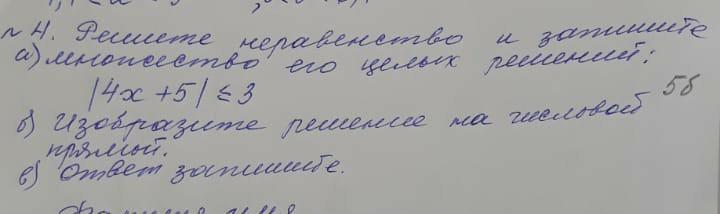 №4. Решите неравенство и запишите
а) множество его целых решений:
|4x+5| ≤ 3
б) Изобразите решение на числовой 5б
прямой.
в) Ответ запишите.